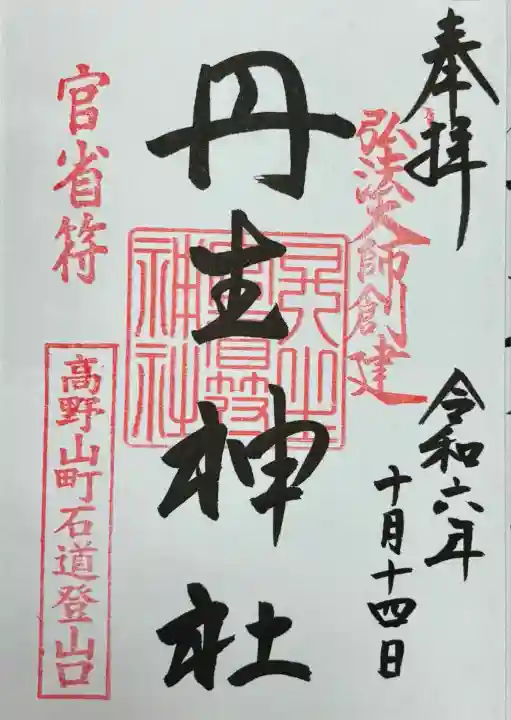 奉拝
弘法大師創建
令和六年
十月十四日
丹生神社
丹生
官省符
神社
官省符
高野山町石道登山口